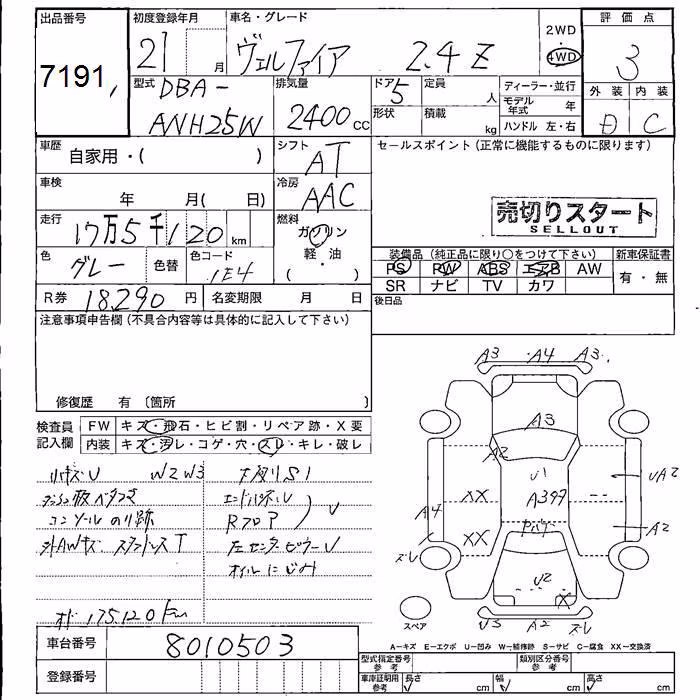 出品番号 初度登録年月 車名・グレード 2WD 評価点
7191 21 月 ヴェルファイア 2.4 Z 4WD 3
型式 DBA- 排気量 ドア 5 定員 人 ディーラー・並行 外装 内装
ANH25W 2400 cc 形状 積載 kg モデル年式 年 D C
ハンドル 左・右
車歴 自家用・( ) シフト AT セールスポイント(正常に機能するものに限ります)
車検 年 月( 日) 冷房 AAC
売切りスタート
SELLOUT
走行 17万5千120km 燃料 ガソリン
軽・油
( )
装備品(純正品に限り○をつけて下さい) 新車保証書
色 グレー 色替 色コード 1E4 PS PW ABS エアB AW 有・無
SR ナビ TV カワ
R券 18290円 名変期限 月 日 後日品
注意事項申告欄(不具合内容等は具体的に記入して下さい)
修復歴 有 〔箇所 〕
検査員 FW キズ・飛石・ヒビ割・リペア跡・X要
記入欄 内装 キズ・汚レ・コゲ・穴・スレ・キレ・破レ
小キズU W2W3 下廻りS1
ダッシュ板ベタつき
コンソールのり跡 Rフロア U
外AWキズ スタッドレスT 左センターピラーU
オイルにじみ
175120km
A3 A4 A3
A3
A2
U1
XX A397 UA2
A4 XX A2
スレ
U2 X
スペア U3 A2 スレ
A-キズ E-エクボ U-凹み W-補修跡 S-サビ C-腐食 XX-交換済
車台番号 8010503
登録番号
型式指定番号 参考 類別区分番号 参考
車庫証明用 参考 長さ cm 幅 cm 高さ cm